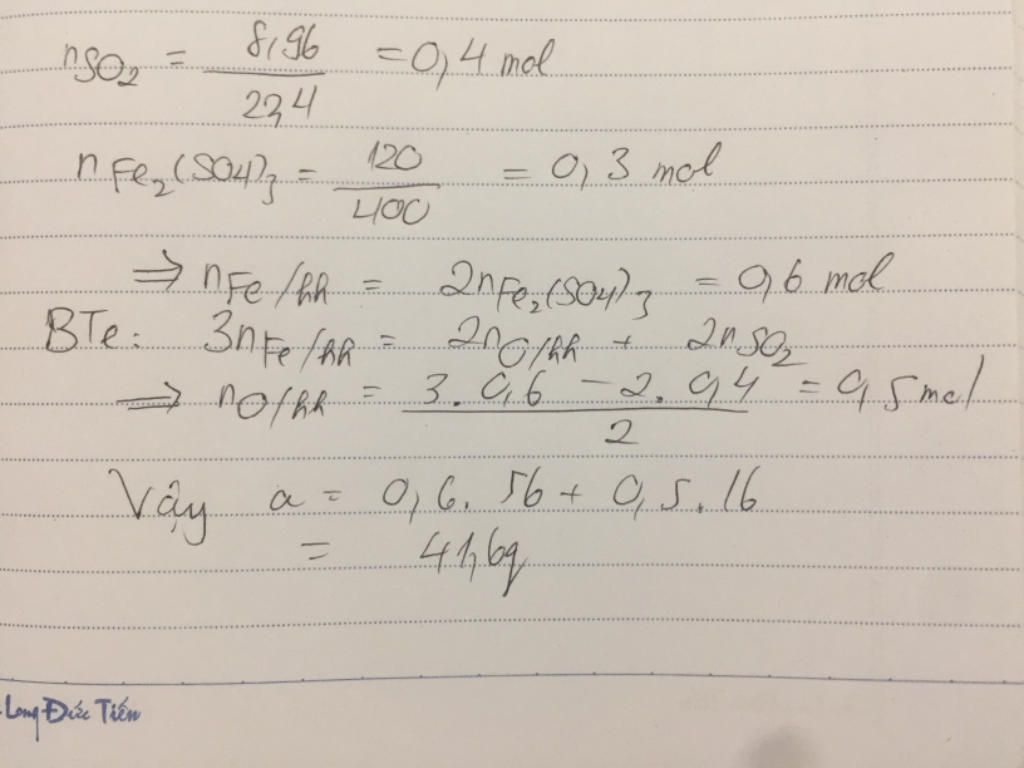 nSO₂ = 8,96 / 22,4 = 0,4 mol
nFe₂(SO₄)₃ = 120 / 400 = 0,3 mol
⇒ nFe/hh = 2nFe₂(SO₄)₃ = 0,6 mol
BTe: 3nFe/hh = 2nO/hh + 2nSO₂
⇒ nO/hh = 3.0,6 - 2.0,4 / 2 = 0,5 mol
Vậy a = 0,6.56 + 0,5.16
= 41,6g
Long Đức Tiến